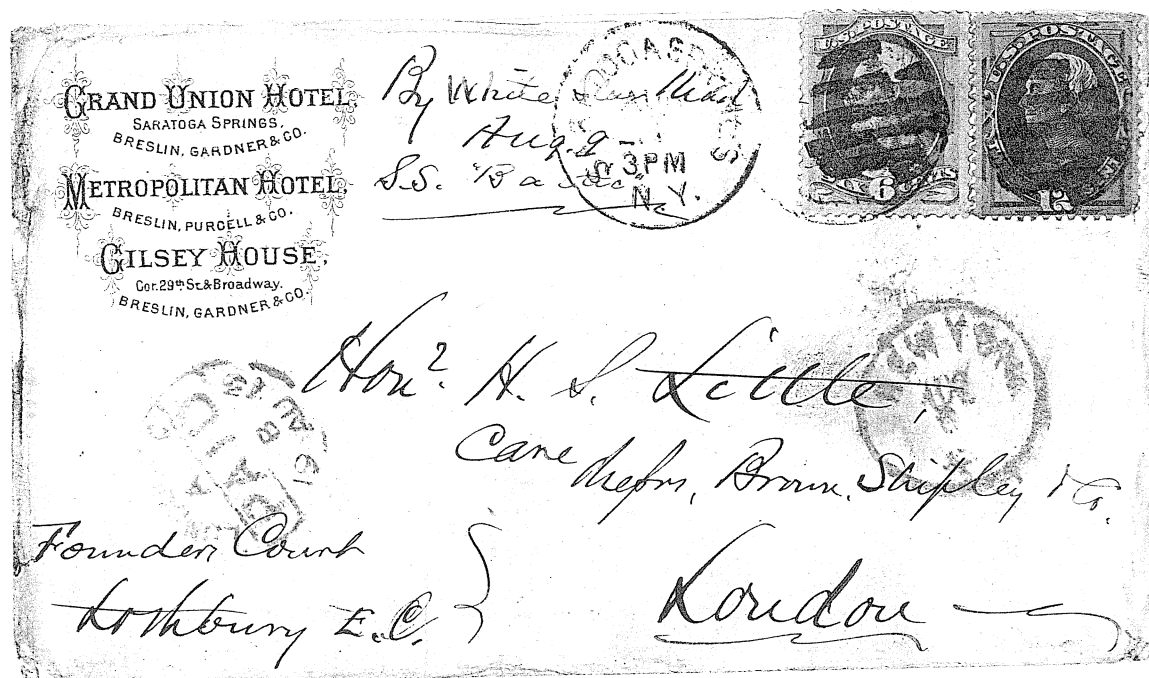 GRAND UNION HOTEL,
SARATOGA SPRINGS,
BRESLIN, GARDNER & CO.
METROPOLITAN HOTEL,
BRESLIN, PURCELL & CO.
GILSEY HOUSE,
Cor. 29th St. & Broadway.
BRESLIN, GARDNER & CO.
By White Star
Aug. 9
S.S. Baltic
SPRINGS
3 PM
N.Y.
U.S. POSTAGE
SIX 6 CENTS
U.S. POSTAGE
12
NEW YORK
Hon. H. S. Little,
Care Messrs, Brown, Shipley & Co.
Founders Court
Lothbury E.C.
London